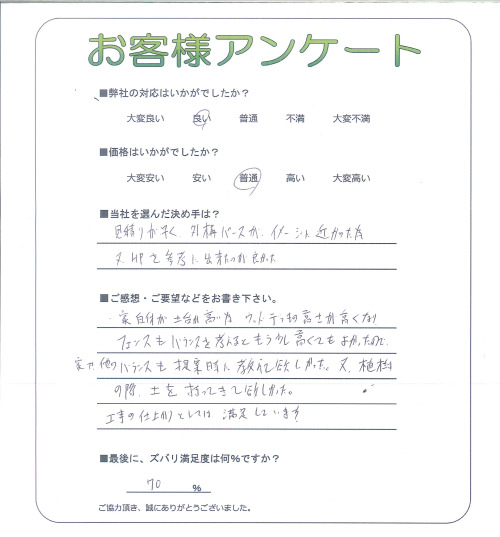 お客様アンケート
■弊社の対応はいかがでしたか？
大変良い 良い 普通 不満 大変不満
■価格はいかがでしたか？
大変安い 安い 普通 高い 大変高い
■当社を選んだ決め手は？
見積りが早く、外構パースが、イメージに近かった為
又、HPを参考に出来たのが良かった
■ご感想・ご要望などをお書き下さい。
・家自体が土台が高い為 ウッドデッキの高さが高くなり
フェンスもバランスを考えるともう少し高くてもよかったので、
家や、他のバランスも提案時に教えて欲しかった。又、植樹
の際、土を持ってきて欲しかった。
工事の仕上りとしては 満足しています
■最後に、ズバリ満足度は何％ですか？
70 ％
ご協力頂き、誠にありがとうございました。